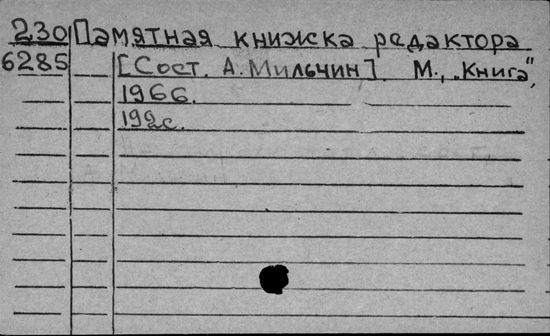 230 Памятная книжка редактора
6285 [Сост. А. Мильчин]. М., „Книга",
1966.
192с.